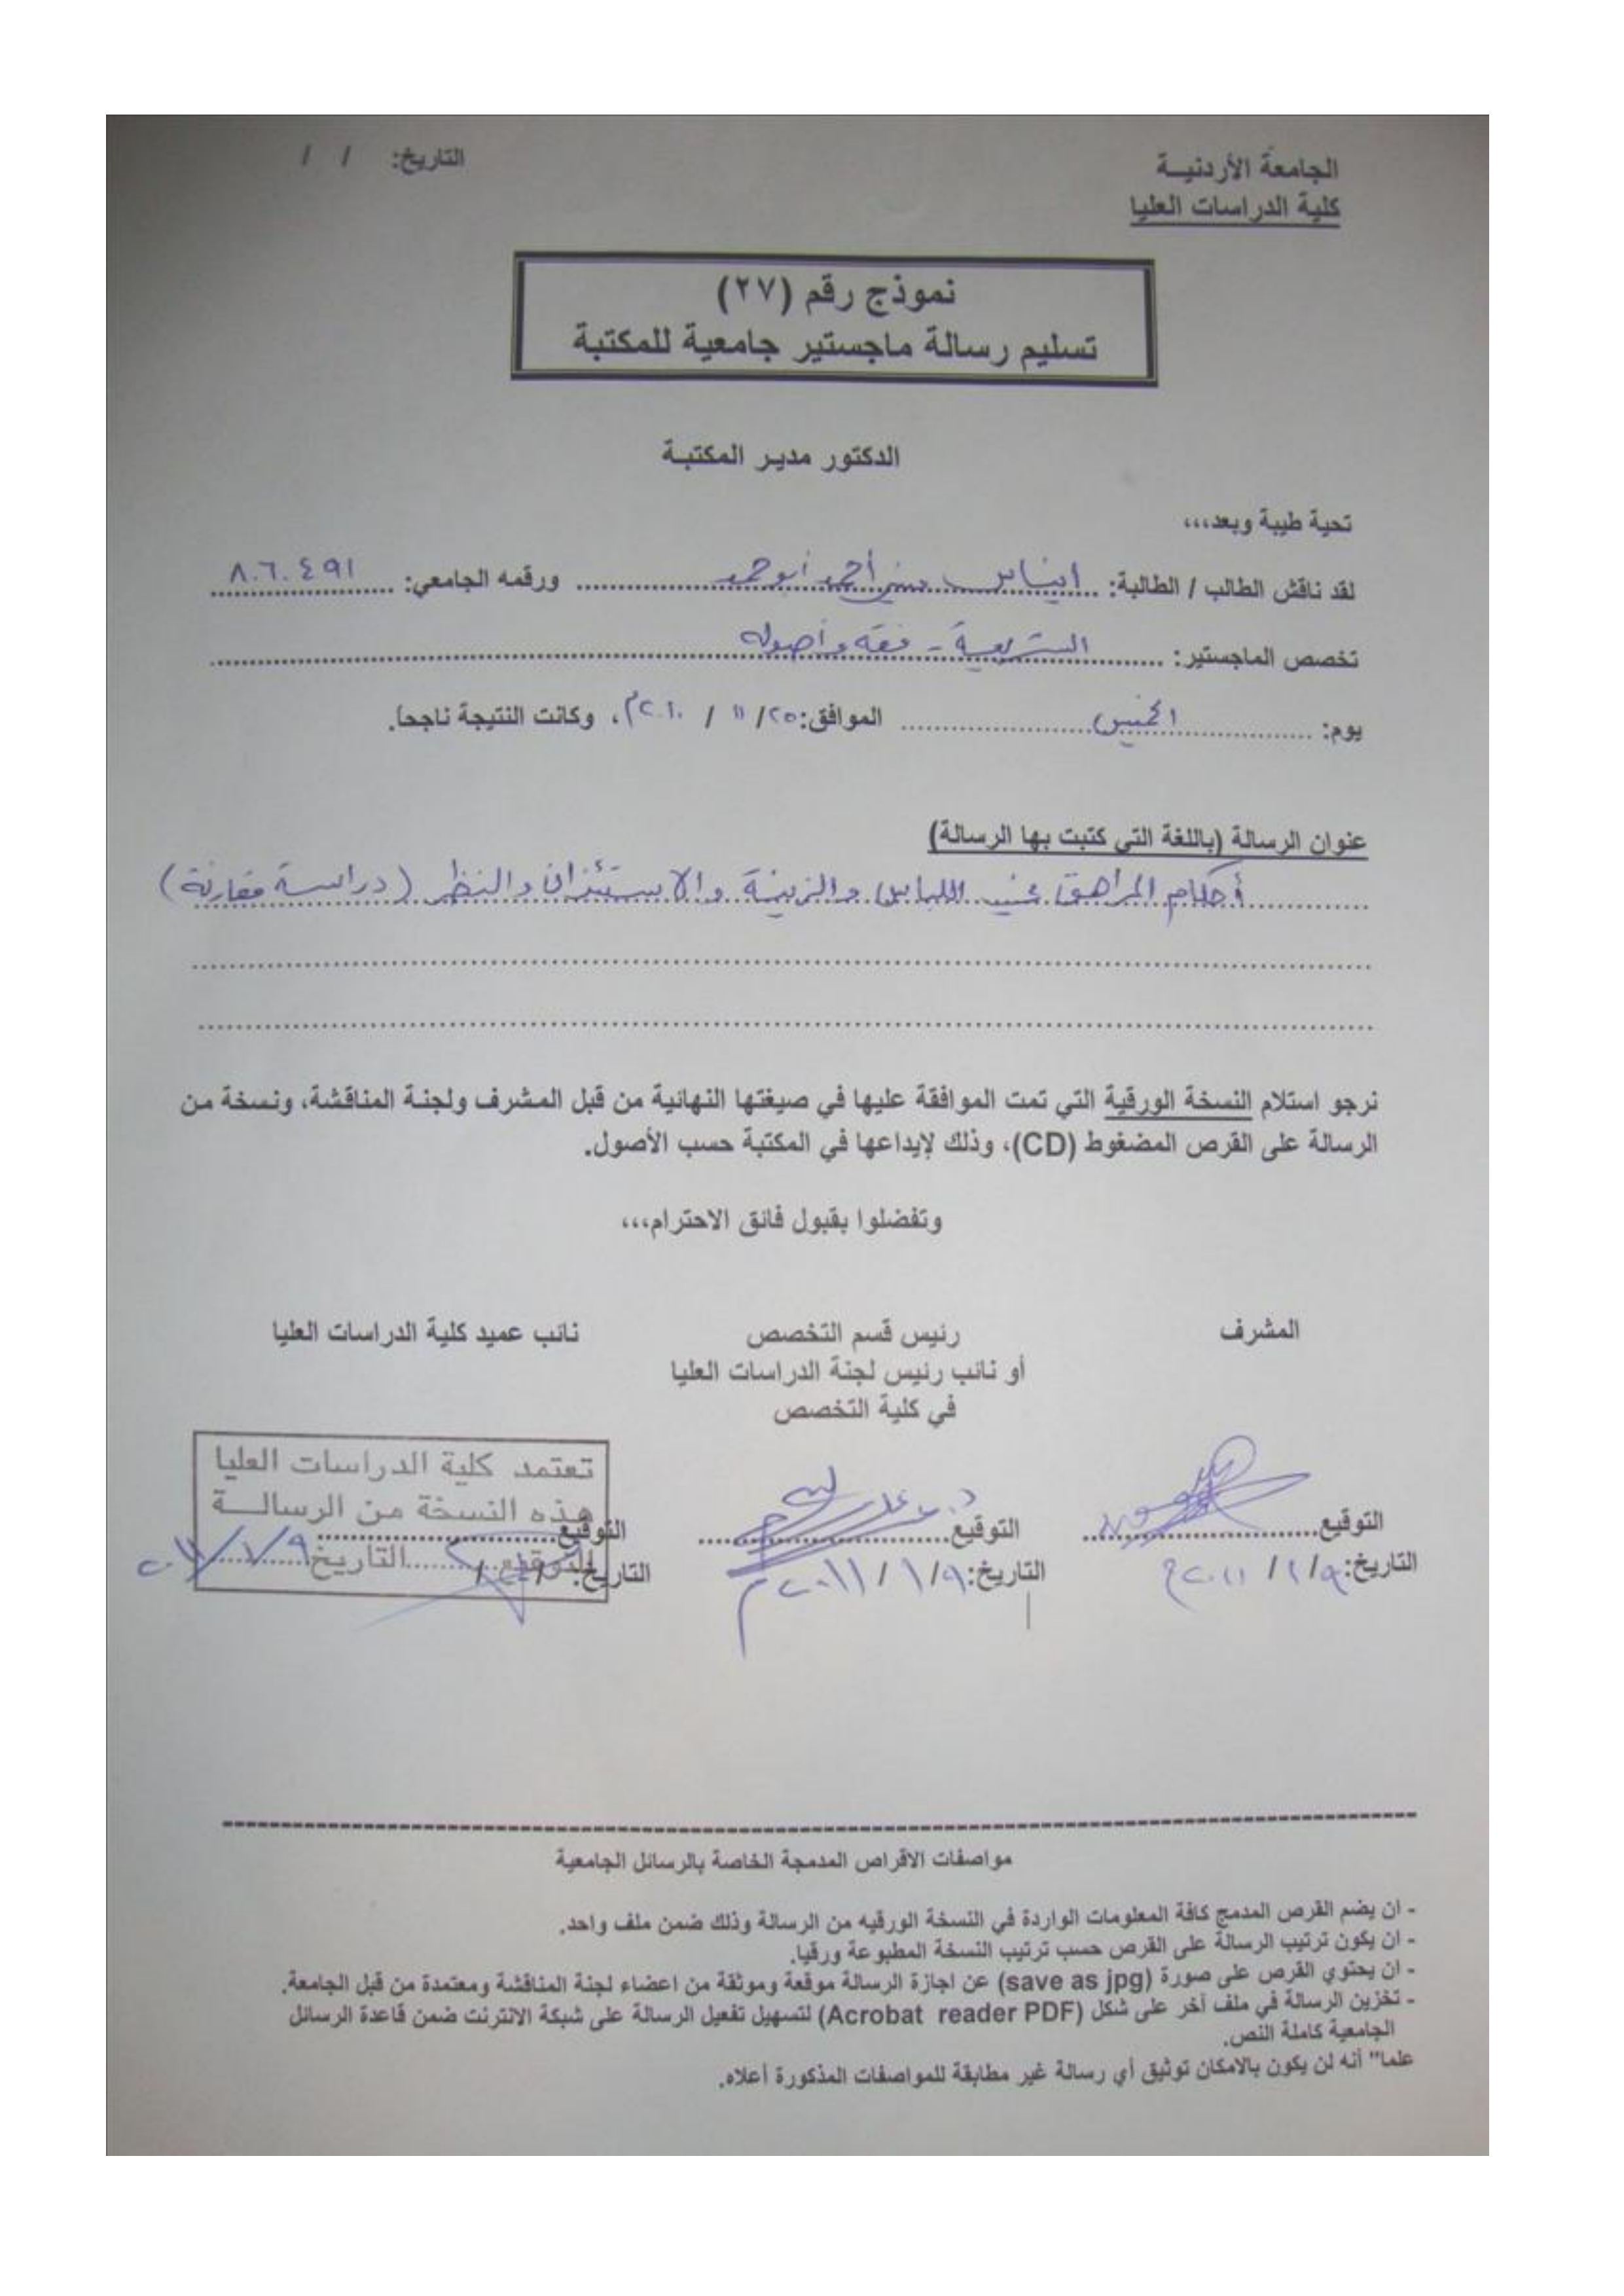 الجامعة الأردنيـة
التاريخ: / /
كلية الدراسات العليا
نموذج رقم (٢٧)
تسليم رسالة ماجستير جامعية للمكتبة
الدكتور مدير المكتبة
تحية طيبة وبعد،،،
لقد ناقش الطالب / الطالبة: ايناس حسني أحمد أبو حمد ورقمه الجامعي: ٨٠٦٠٤٩١
تخصص الماجستير: الشريعة - فقه وأصوله
يوم: الخميس الموافق: ٢٥/ ١١ / ٢٠١٠م، وكانت النتيجة ناجحاً.
عنوان الرسالة (باللغة التي كتبت بها الرسالة)
أحكام المراهق في اللباس والزينة والاستئذان والنظر (دراسة مقارنة)
نرجو استلام النسخة الورقية التي تمت الموافقة عليها في صيغتها النهائية من قبل المشرف ولجنة المناقشة، ونسخة من
الرسالة على القرص المضغوط (CD)، وذلك لإيداعها في المكتبة حسب الأصول.
وتفضلوا بقبول فائق الاحترام،،،
المشرف
رئيس قسم التخصص
أو نائب رئيس لجنة الدراسات العليا
في كلية التخصص
نائب عميد كلية الدراسات العليا
تعتمد كلية الدراسات العليا
هذه النسخة من الرسالـــة
التوقيع........التاريخ ٩/١/٢٠١١
التوقيع
التاريخ: ٩/ ١/ ٢٠١١م
التوقيع
التاريخ: ٩/ ١/ ٢٠١١م
التوقيع
التاريخ: / /
مواصفات الاقراص المدمجة الخاصة بالرسائل الجامعية
- ان يضم القرص المدمج كافة المعلومات الواردة في النسخة الورقيه من الرسالة وذلك ضمن ملف واحد.
- ان يكون ترتيب الرسالة على القرص حسب ترتيب النسخة المطبوعة ورقيا.
- ان يحتوي القرص على صورة (save as jpg) عن اجازة الرسالة موقعة وموثقة من اعضاء لجنة المناقشة ومعتمدة من قبل الجامعة.
- تخزين الرسالة في ملف آخر على شكل (Acrobat reader PDF) لتسهيل تفعيل الرسالة على شبكة الانترنت ضمن قاعدة الرسائل
الجامعية كاملة النص.
علما" أنه لن يكون بالامكان توثيق أي رسالة غير مطابقة للمواصفات المذكورة أعلاه.